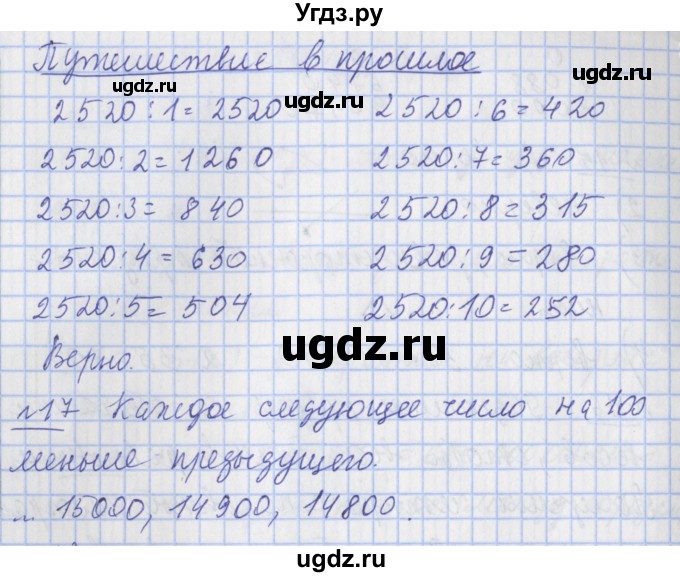 Угдз.ру
Путешествие в прошлое
2520:1=2520 2520:6=420
2520:2=1260 2520:7=360
2520:3=840 2520:8=315
2520:4=630 2520:9=280
2520:5=504 2520:10=252
Верно.
№17 Каждое следующее число на 100
меньше предыдущего.
... 15000, 14900, 14800.
ugdz.ru
ugdz.ru
ugdz.ru
ugdz.ru
ugdz.ru
ugdz.ru
ugdz.ru
ugdz.ru
ugdz.ru